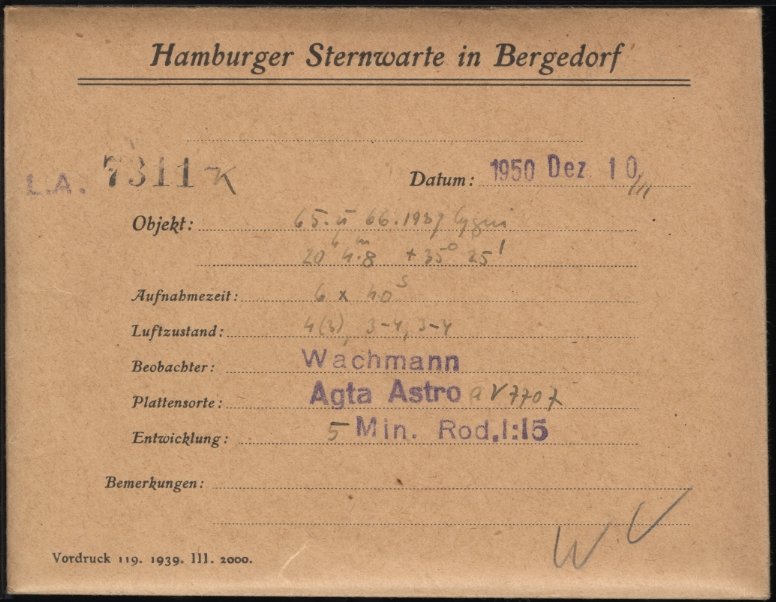 Hamburger Sternwarte in Bergedorf
L.A. 7311-K
Datum: 1950 Dez 10/11
Objekt: 65. u 66.1937 Cygni
20ʰ 4ᵐ.8 +35° 25'
Aufnahmezeit: 6 x 40ˢ
Luftzustand: 4(3), 3-4, 3-4
Beobachter: Wachmann
Plattensorte: Agfa Astro a V 7707
Entwicklung: 5 Min. Rod.1:15
Bemerkungen:
W. V
Vordruck 119. 1939. III. 2000.